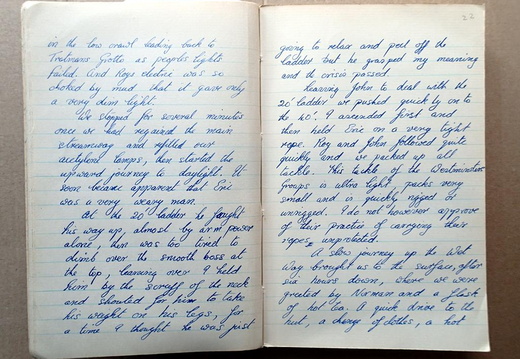 in the low crawl leading back to
Tratmans Grotto as peoples lights
failed. And Roys electric was so
choked by mud that it gave only
a very dim light.
We stopped for several minutes
once we had regained the main
streamway and refilled our
acetylene lamps, then started the
upward journey to daylight. It
soon became apparent that Eric
was a very weary man.
At the 20' ladder he fought
his way up, almost by arm power
alone, then was too tired to
climb over the smooth boss at
the top, leaning over I held
him by the scruff of the neck
and shouted for him to take
his weight on his legs, for
a time I thought he was just
22
going to relax and peel off the
ladder but he grasped my meaning
and the crisis passed.
Leaving John to deal with the
20' ladder we pushed quickly on to
the 40'. I ascended first and
then held Eric on a very tight
rope. Roy and John followed quite
quickly and we packed up all
tackle. This tackle of the Westminster
Groups is ultra light, packs very
small and is quickly rigged or
unrigged. I do not however approve
of their practice of carrying their
ropes unprotected.
A slow journey up the Wet
Way brought us to the surface, after
six hours down, where we were
greeted by Norman and a flask
of hot tea. A quick drive to the
hut, a change of clothes, a hot